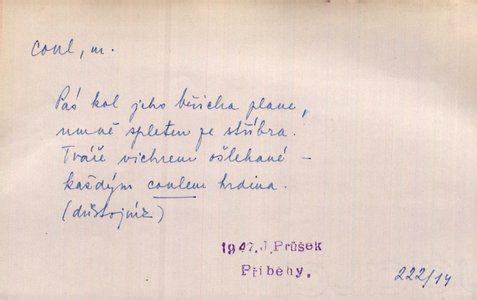 coul, m.
Pás kol jeho břicha plane,
umně spleten ze stříbra.
Tváře vichrem ošlehané –
každým coulem hrdina.
(důstojník)
1947. J. Průšek
Příběhy.
222/14